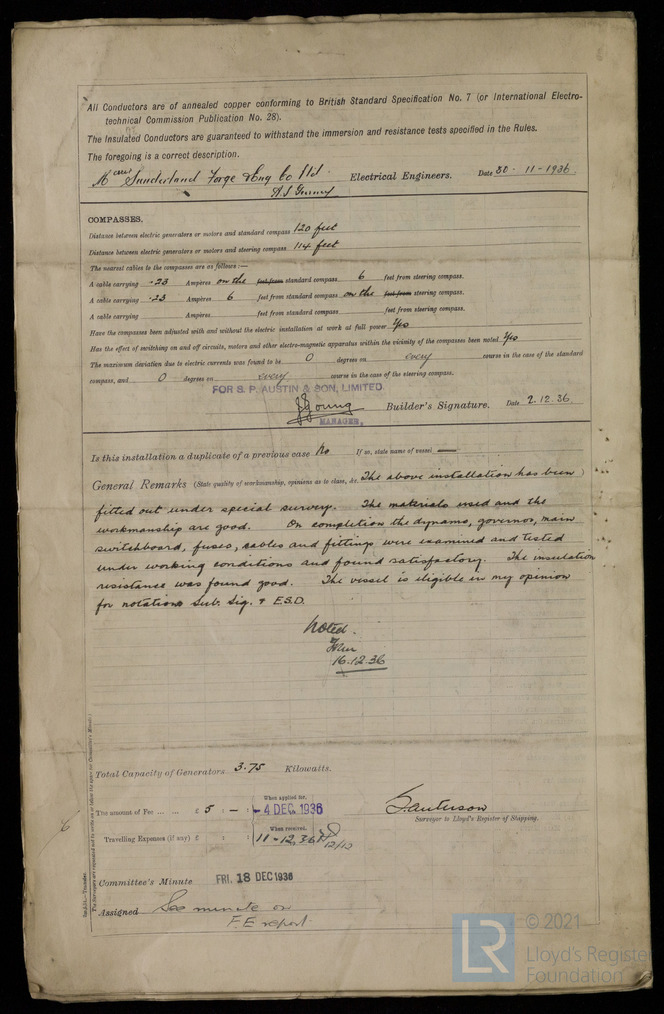 All Conductors are of annealed copper conforming to British Standard Specification No. 7 (or International Electro-
technical Commission Publication No. 28).
The Insulated Conductors are guaranteed to withstand the immersion and resistance tests specified in the Rules.
The foregoing is a correct description.
Sunderland Forge & Eng Co Ltd. Electrical Engineers. Date 30-11-1936
COMPASSES.
Distance between electric generators or motors and standard compass 120 feet
Distance between electric generators or motors and steering compass 114 feet
The nearest cables to the compasses are as follows:—
A cable carrying .23 Ampères on the feet from standard compass 6 feet from steering compass.
A cable carrying .23 Ampères 6 feet from standard compass on the feet from steering compass.
A cable carrying Ampères feet from standard compass feet from steering compass.
Have the compasses been adjusted with and without the electric installation at work at full power Yes
Has the effect of switching on and off circuits, motors and other electro-magnetic apparatus within the vicinity of the compasses been noted Yes
The maximum deviation due to electric currents was found to be 0 degrees on every course in the case of the standard
compass, and 0 degrees on every course in the case of the steering compass.
FOR S. P. AUSTIN & SON, LIMITED.
Young Builder's Signature. Date 2.12.36
MANAGER,
Is this installation a duplicate of a previous case No If so, state name of vessel —
General Remarks (State quality of workmanship, opinions as to class, &c. The above installation has been )
fitted out under special survey. The materials used and the
workmanship are good. On completion the dynamo, governor, main
switchboard, fuses, cables and fittings were examined and tested
under working conditions and found satisfactory. The insulation
resistance was found good. The vessel is eligible in my opinion
for notations Sub. Sig. & E.S.D.
Noted.
16.12.36
Total Capacity of Generators 3.75 Kilowatts.
When applied for,
The amount of Fee ... ... £ 5 : - : -4 DEC 1936
When received,
Travelling Expenses (if any) £ : : 11-12.36 12/12
Surveyor to Lloyd's Register of Shipping.
Committee's Minute FRI. 18 DEC 1936
Assigned See minute on
F.E report.
The Surveyors are requested not to write on or below the space for Committee's Minute.
LR
© 2021
Lloyd's Register
Foundation